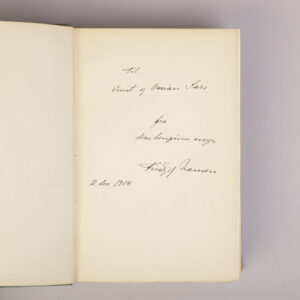 Til
Ernst og Ossian Sars
fra
deres hengivne svoger
Fridtjof Nansen
2. dec. 1914